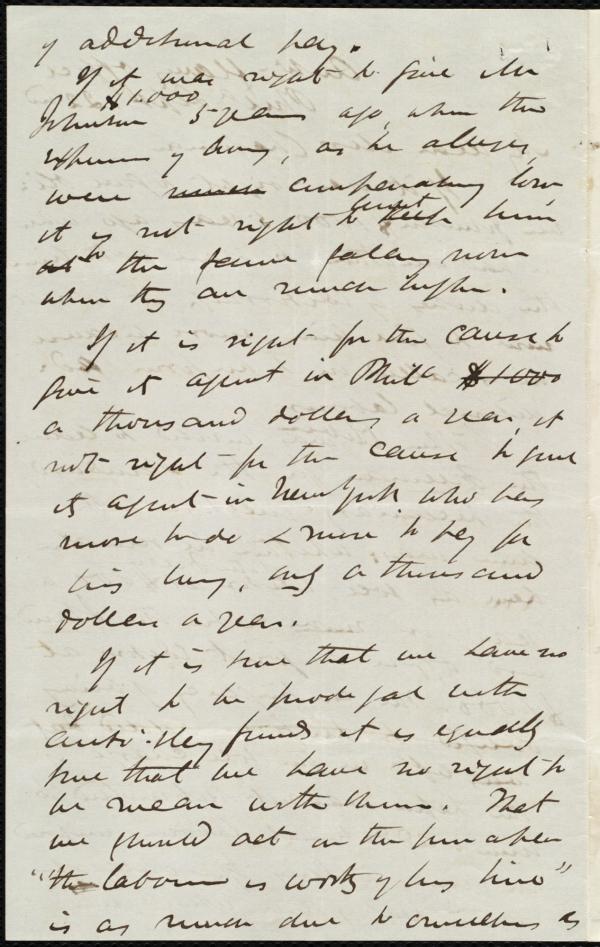 of additional pay.
If it was right to give Mr
$1.000
Johnson 5 years ago, when the
expenses of living, as he alleges,
were much comparatively low,
it is not right to keep limit him
at to the same salary now
when they are much higher.
If it is right for the cause to
give its agent in Phila $1000
a thousand dollars a year, it
not right for the cause to give
its agent in New York who has
more to do & more to pay for
his living, only a thousand
dollars a year.
If it is true that we have no
right to be prodigal with
anti-slavery funds it is equally
true that we have no right to
be mean with them. That
we should act on the principle
"the labourer is worthy of his hire"
is as much due to ourselves as